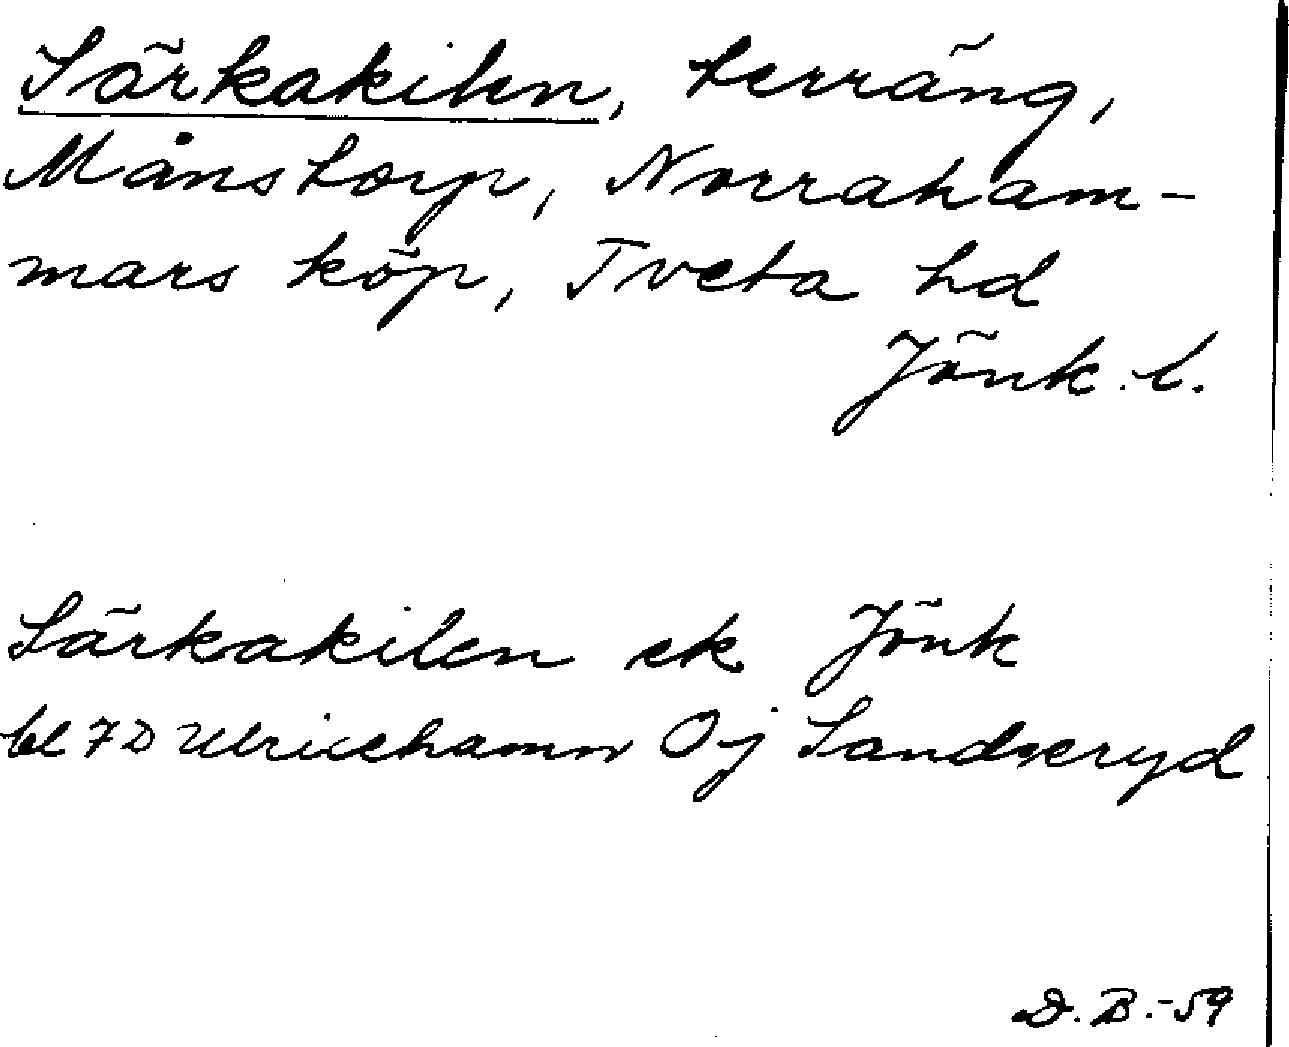 Särkakilen, terräng,
Månstorp, Norraham-
mars köp, Tveta hd
Jönk. l.
Särkakilen ek Jönk
bl 7D Ulricehamn Oj Sandseryd
D. B. -59